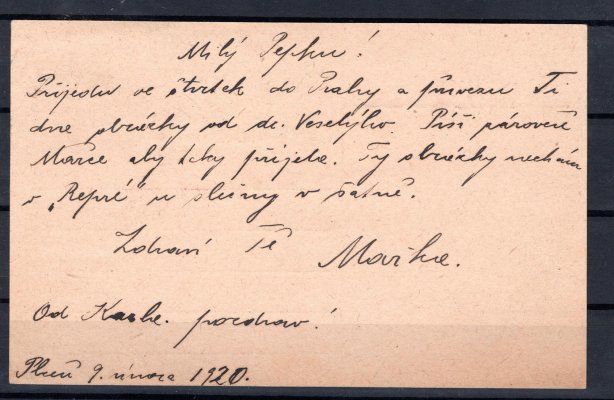 Milý Pepku!
Přijedu ve čtvrtek do Prahy a přivezu Ti
dva obrázky od dr. Veselýho. Píši zároveň
Mařce aby taky přijela. Ty obrázky nechám
v „Repré" u slečny v šatně.
Zdraví Tě Mařka.
Od Karla. pozdrav!
Plzeň 9. února 1920.